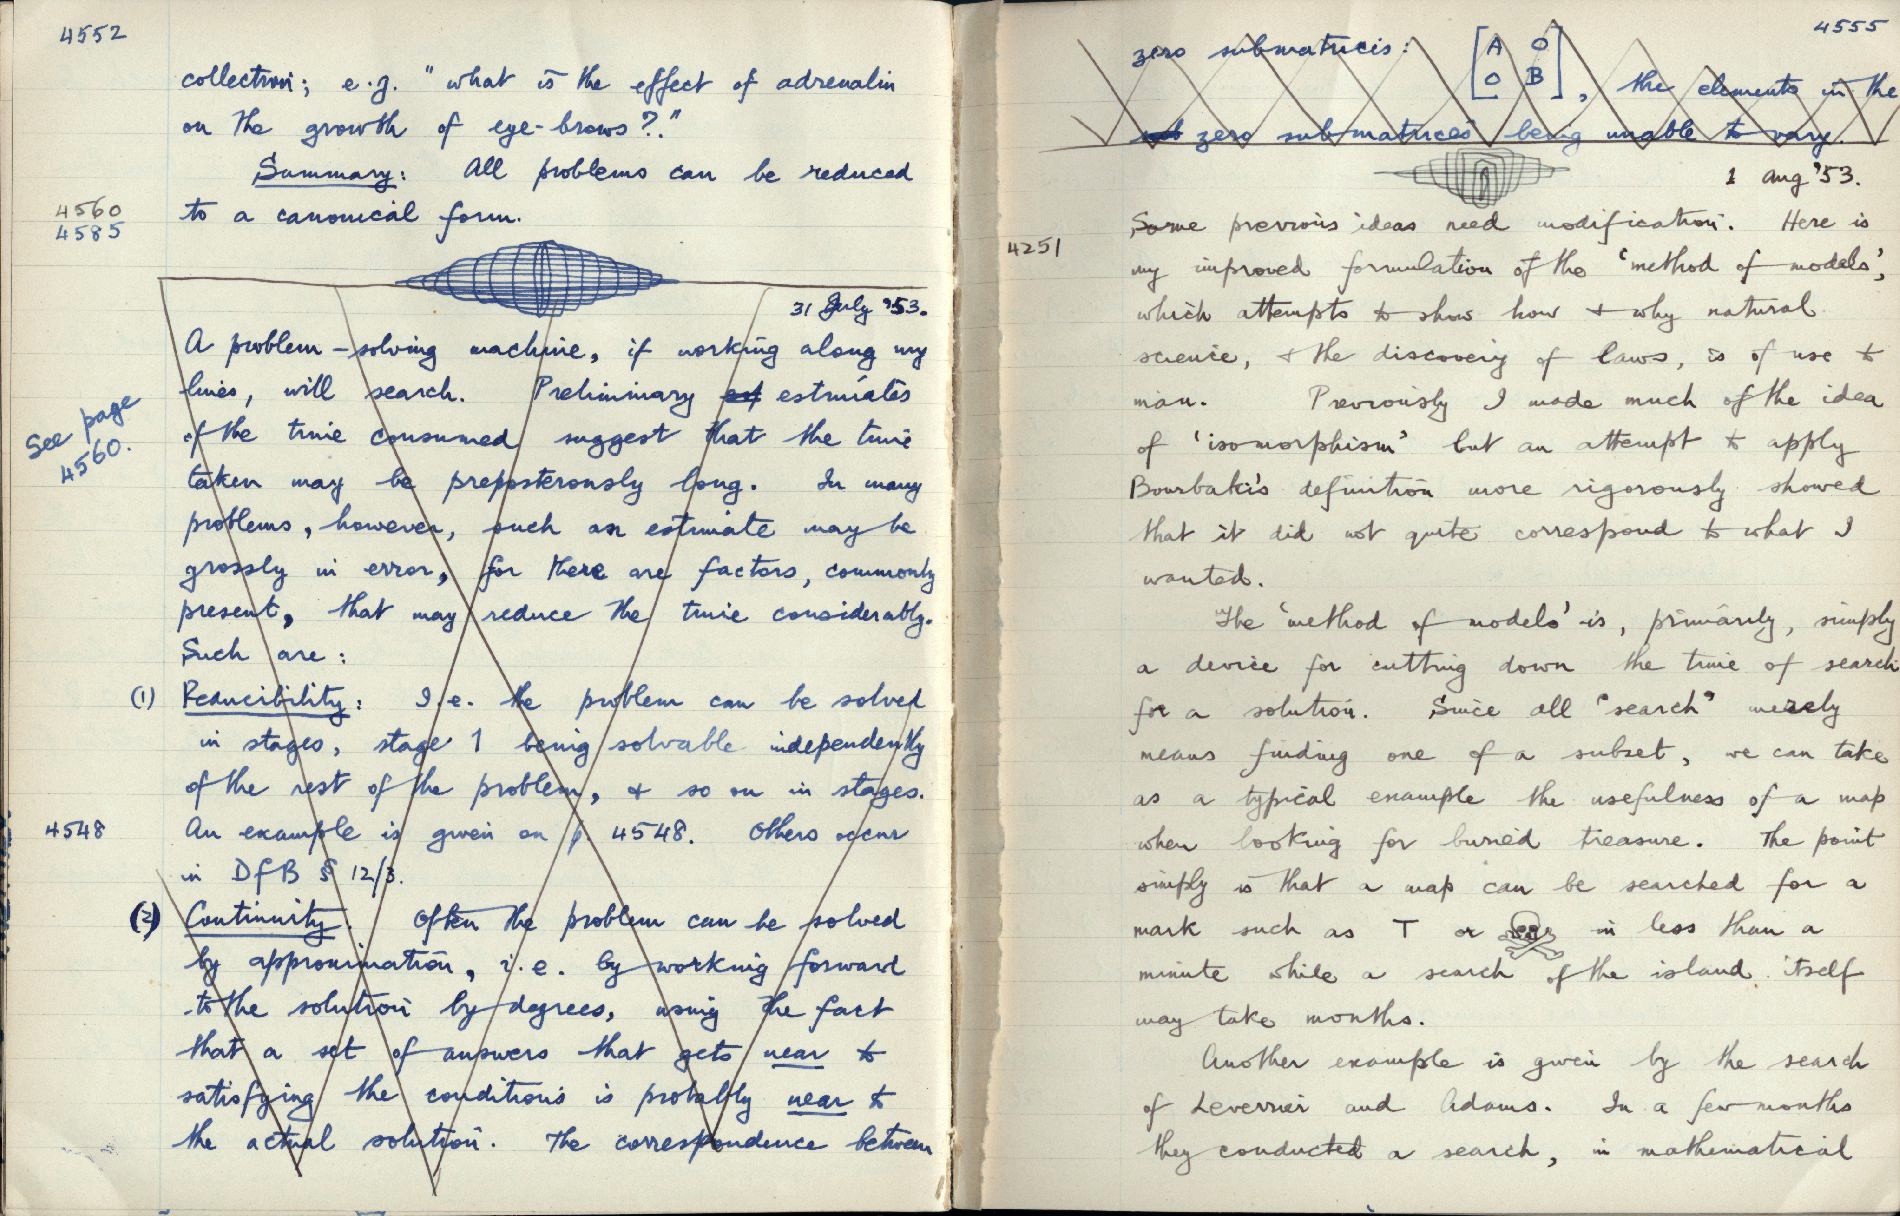 4552
collection; e.g. "what is the effect of adrenalin
on the growth of eye-brows?."
Summary: All problems can be reduced
4560
4585
to a canonical form.
31 July '53.
A problem-solving machine, if working along my
lines, will search. Preliminary est estimates
of the time consumed suggest that the time
See page
4560.
taken may be preposterously long. In many
problems, however, such an estimate may be
grossly in error, for there are factors, commonly
present, that may reduce the time considerably.
Such are:
(1) Reducibility: I.e. the problem can be solved
in stages, stage 1 being solvable independently
of the rest of the problem, & so on in stages.
4548 An example is given on p. 4548. Others occur
in DfB § 12/3.
(2) Continuity. Often the problem can be solved
by approximation, i.e. by working forward
to the solution by degrees, using the fact
that a set of answers that gets near to
satisfying the conditions is probably near to
the actual solution. The correspondence between
4555
zero submatricis: [A O
O B], the elements in the
sub zero submatrices being unable to vary.
1 Aug '53.
Some previous ideas need modification. Here is
4251 my improved formulation of the 'method of models',
which attempts to show how & why natural
science, & the discovery of laws, is of use to
man. Previously I made much of the idea
of 'isomorphism' but an attempt to apply
Bourbaki's definition more rigorously showed
that it did not quite correspond to what I
wanted.
The 'method of models' is, primarily, simply
a device for cutting down the time of search
for a solution. Since all "search" merely
means finding one of a subset, we can take
as a typical example the usefulness of a map
when looking for buried treasure. The point
simply is that a map can be searched for a
mark such as T or ☠ in less than a
minute while a search of the island itself
may take months.
Another example is given by the search
of Leverrier and Adams. In a few months
they conducted a search, in mathematical